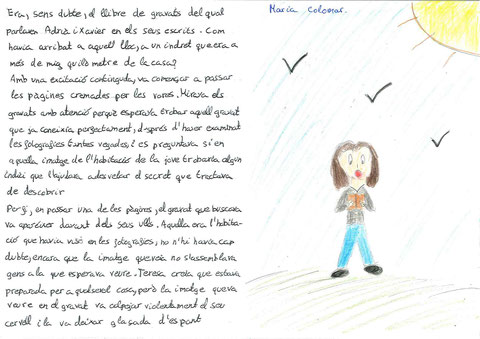 Era, sens dubte, el llibre de gravats del qual
parlaven Adrià i Xavier en els seus escrits. Com
havia arribat a aquell lloc, a un indret que era a
més de mig quilòmetre de la casa?
Amb una excitació continguda, va començar a passar
les pàgines cremades per les vores. Mirava els
gravats amb atenció perquè esperava trobar aquell gravat
que ja coneixia perfectament, després d'haver examinat
les fotografies tantes vegades, i es preguntava si en
aquella imatge de l'habitació de la jove trobaria algun
indici que l'ajudara a desvelar el secret que tractava
de descobrir
Per fi, en passar una de les pàgines, el gravat que buscava
va aparéixer davant dels seus ulls. Aquella era l'habita-
ció que havia vist en les fotografies, no n'hi havia cap
dubte, encara que la imatge que veia no s'assemblava
gens a la que esperava veure. Teresa creia que estava
preparada per a qualsevol cosa, però la imatge que va
veure en el gravat va colpejar violentament el seu
cervell i la va deixar glaçada d'espant
Maria Colomar.